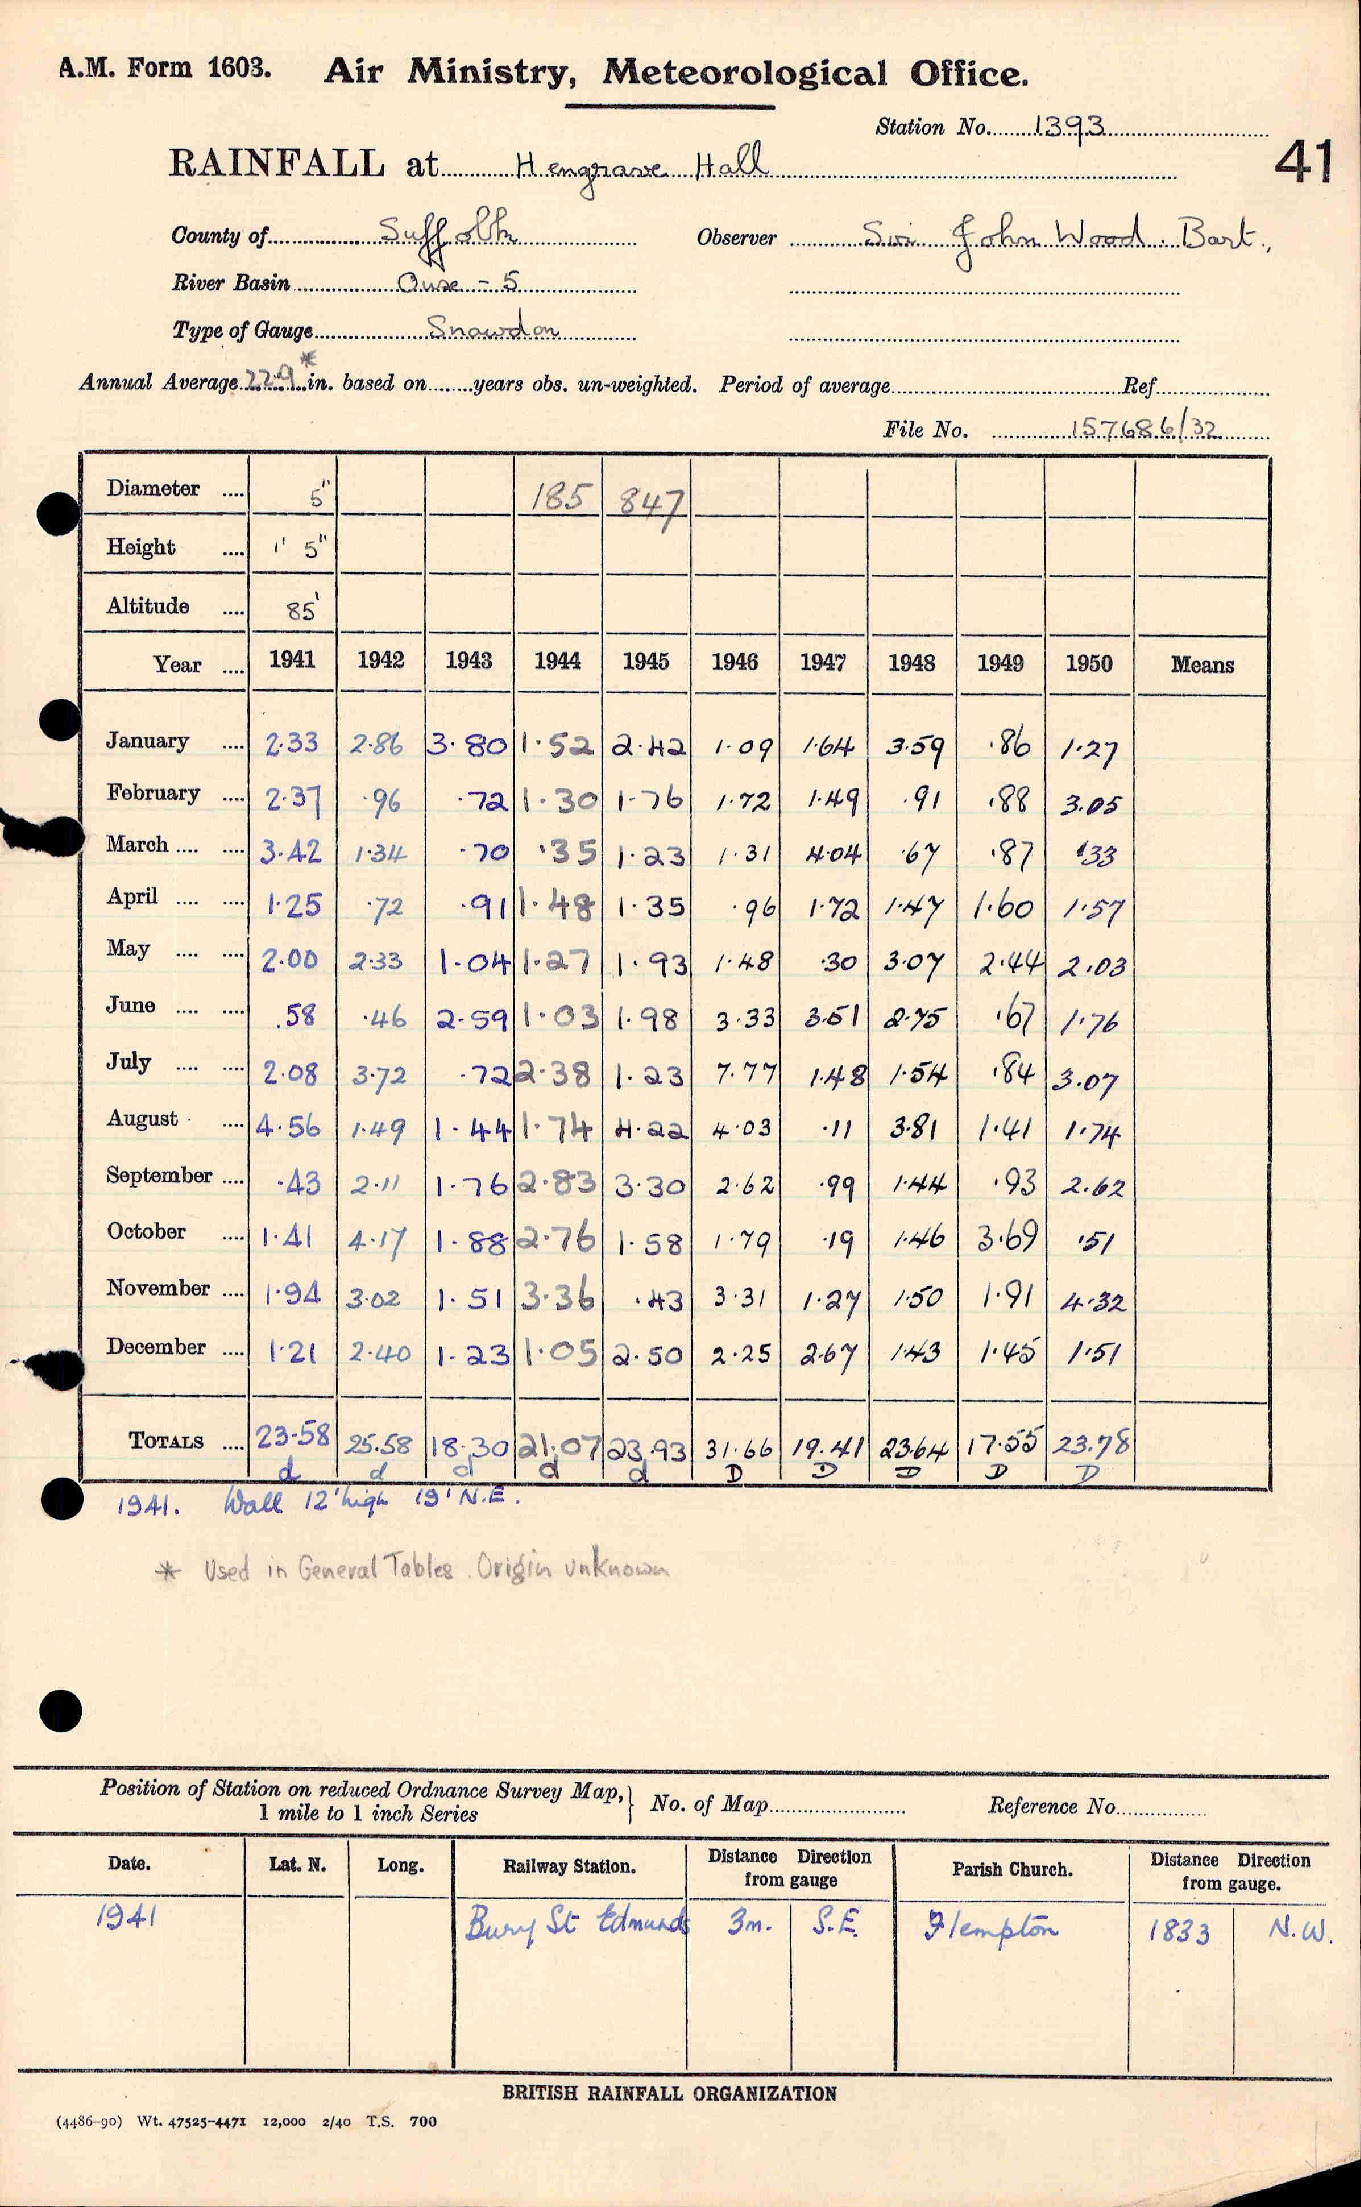 A.M. Form 1603. Air Ministry, Meteorological Office.
Station No. 1393
41
RAINFALL at Hengrave Hall
County of Suffolk Observer Sir John Wood. Bart.,
River Basin Ouse - 5
Type of Gauge Snowdon
Annual Average 22.9* in. based on years obs. un-weighted. Period of average Ref.
File No. 157686/32
Diameter .... 5" 185 847
Height .... 1' 5"
Altitude .... 85'
Year .... 1941 1942 1943 1944 1945 1946 1947 1948 1949 1950 Means
January .... 2.33 2.86 3.80 1.52 2.42 1.09 1.64 3.59 .86 1.27
February .... 2.37 .96 .72 1.30 1.76 1.72 1.49 .91 .88 3.05
March .... .... 3.42 1.34 .70 .35 1.23 1.31 4.04 .67 .87 .33
April .... .... 1.25 .72 .91 1.48 1.35 .96 1.72 1.47 1.60 1.57
May .... .... 2.00 2.33 1.04 1.27 1.93 1.48 .30 3.07 2.44 2.03
June .... .... .58 .46 2.59 1.03 1.98 3.33 3.51 2.75 .67 1.76
July .... .... 2.08 3.72 .72 2.38 1.23 7.77 1.48 1.54 .84 3.07
August .... 4.56 1.49 1.44 1.74 4.22 4.03 .11 3.81 1.41 1.74
September .... .43 2.11 1.76 2.83 3.30 2.62 .99 1.44 .93 2.62
October .... 1.41 4.17 1.88 2.76 1.58 1.79 .19 1.46 3.69 .51
November .... 1.94 3.02 1.51 3.36 .43 3.31 1.27 1.50 1.91 4.32
December .... 1.21 2.40 1.23 1.05 2.50 2.25 2.67 1.43 1.45 1.51
TOTALS .... 23.58 25.58 18.30 21.07 23.93 31.66 19.41 23.64 17.55 23.78
d d d d d D D D D D
1941. Wall 12' high 19' N.E.
* Used in General Tables. Origin unknown
Position of Station on reduced Ordnance Survey Map, 1 mile to 1 inch Series } No. of Map Reference No.
Date. Lat. N. Long. Railway Station. Distance Direction from gauge Parish Church. Distance Direction from gauge.
1941 Bury St Edmunds 3m. S.E. Flempton 1833 N.W.
BRITISH RAINFALL ORGANIZATION
(4486-90) Wt. 47525-4471 12,000 2/40 T.S. 700